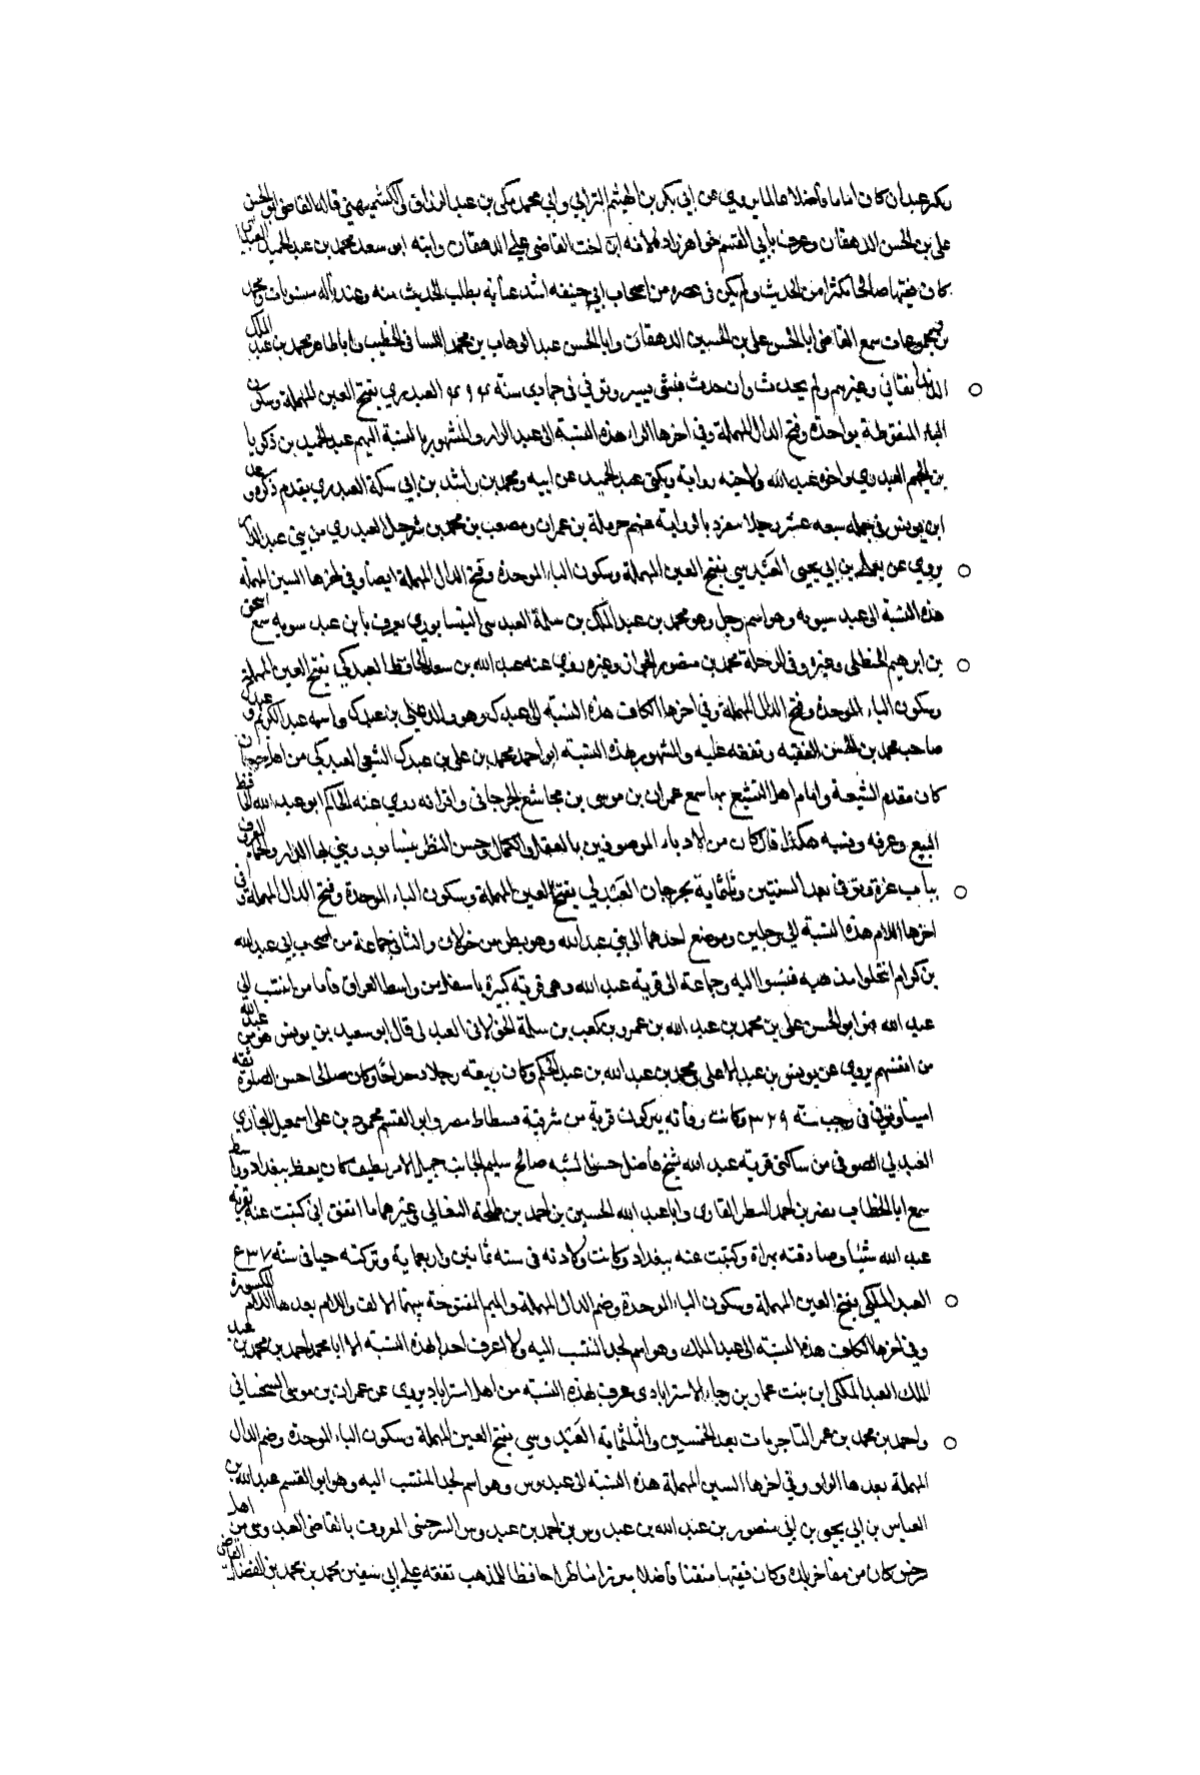 بكر عبدان كان اماما فاضلا عالما يروي عن ابي بكر بن الهيثم الترابي وابي محمد مكي بن عبد الرزاق الكشميهني قاله القاضي ابو الحسن
علي بن الحسن الدهقان وعرف بابي القسم خواهرزاد لانه ابن اخت القاضي علي الدهقان وابنه ابو سعد محمد بن عبد الحميد العبداني
كان فقيها صالحا مكثرا من الحديث ولم يكن في عصره من اصحاب ابي حنيفه اشد عناية بطلب الحديث منه وعندنا له
مجموعات سمع القاضي ابا الحسن علي بن الحسين الدهقان وابا الحسن عبد الوهاب بن محمد الخطيب وابا طاهر محمد بن عبد الملك
وغيرهم ولم يحدث وان حدث فبشي يسير وتوفي في جمادى سنة العبدري بفتح العين المهملة وسكون
الباء المنقوطة بواحدة وفتح الدال المهملة وفي اخرها الراء هذه النسبة الى عبد الدار والمشهور بالنسبة اليهم عبد الحميد بن زكريا
بن الجهم العبدري واخوه عبد الله ولاخيه رواية ويكنى عبد الحميد عن ابيه ومحمد بن راشد بن ابي سكة العبدري يقدم ذكره
ابن يونس في جملة سبعه عشر رجلا بالرواية عنهم حرملة بن عمران ومصعب بن محمد بن شرحبيل العبدري من بني عبد الدار
يروي عن بن ابي يحيى العبدسي بفتح العين المهملة وسكون الباء الموحدة وفتح الدال المهملة ايضا وفي اخرها السين المهملة
هذه النسبة الى عبد سيويه وهو اسم رجل وهو محمد بن عبد الملك بن سلمة العبدسي النيسابوري يعرف بابن عبد سويه سمع اسحق
بن ابرهيم الحنظلي وغيره وفي الرحلة محمد بن منصور الجواز وغيره روي عنه عبد الله بن سعد الحافظ العبدكي بفتح العين المهملة
وسكون الباء الموحدة وفتح الدال المهملة وفي اخرها الكاف هذه النسبة الى عبدك وهو والد علي بن عبدك واسمه عبد الكريم
صاحب محمد بن الحسن الفقيه وتفقه عليه والمشهور بهذه النسبة ابو احمد محمد بن علي بن عبدك الشيعي العبدكي من اهل جرجان
كان مقدم الشيعة وامام اهل التشيع بها سمع عمران بن موسى بن مجاشع الجرجاني واقرانه روي عنه الحاكم ابو عبد الله الحافظ
البيع وعرفه ونسبه هكذا قال كان من الادباء الموصوفين بالعقل والكمال وحسن النظر بنيسابور وبني بها الدار والحمام المعروف
بباب عزرة وتوفي بعد الستين وثلثماية بجرجان العبدلي بفتح العين المهملة وسكون الباء الموحدة وفتح الدال المهملة وفي
اخرها اللام هذه النسبة الى رجلين وموضع احدهما الى بني عبد الله وهو بطن من خولان والثاني جماعة من اصحاب ابي عبد الله
بن كرام انتحلوا مذهبه فنسبوا اليه وجماعة الى قرية عبد الله وهي قرية كبيرة باسفل من واسط العراق فاما من انتسب الى
عبد الله فهو ابو الحسن علي بن محمد بن عبد الله بن عمرو بن كعب بن سلمة الخولاني العبدلي قال ابو سعيد بن يونس هو من عبد الله
من انفسهم يروي عن يونس بن عبد الاعلى ومحمد بن عبد الله بن عبد الحكم وكان ثقه رجلا صالحا حسن الصلوة
امينا توفي في رجب سنة ٣٢٩ وكانت وفاته ببركوت قرية من شرقية فسطاط مصر وابو القسم محمود بن علي اسمعيل البخاري
العبدلي الصوفي من ساكني قرية عبد الله شيخ فاضل حسن الشيبه صالح سليم الجانب جميل الامر كان يعظ ببغداد وواسط
سمع ابا الخطاب نصر بن احمد البطر القاري وابا عبد الله الحسين بن احمد بن طلحة النعالي وغيرهما اتفق اني كتبت عنه بقرية
عبد الله شيئا وصادفته بهراة وكتبت عنه ببغداد وكانت ولادته في سنه ثمانين واربعماية وتركته حيا في سنة
العبد الملكي بفتح العين المهملة وسكون الباء الموحدة وضم الدال المهملة والميم المفتوحة بينهما الالف واللام بعدها اللام المكسورة
وفي اخرها الكاف هذه النسبة الى عبد الملك وهو اسم لجد المنتسب اليه ولا اعرف احدا بهذه النسبة الا ابا محمد احمد بن محمد بن عبد
الملك العبد الملكي ابن بنت عمار بن رجاء الاستراباذي عرف بهذه النسبة من اهل استراباذ يروي عن عمران بن موسى السختياني
واحمد بن محمد بن عمر التاجر مات بعد الخمسين والثلثماية العبدوسي بفتح العين المهملة وسكون الباء الموحدة وضم الدال
المهملة بعدها الواو وفي اخرها السين المهملة هذه النسبة الى عبدوس وهو اسم لجد المنتسب اليه وهو ابو القسم عبد الله بن
العباس بن ابي يحيى بن ابي منصور بن عبد الله بن عبدوس بن احمد بن عبدوس السرخسي المعروف بالقاضي العبدوسي من اهل
سرخس كان من مفاخر بلده وكان فقيها متقنا فاضلا مبرزا مناظرا حافظا للمذهب تفقه على ابي محمد بن محمد بن الفضل القاضي